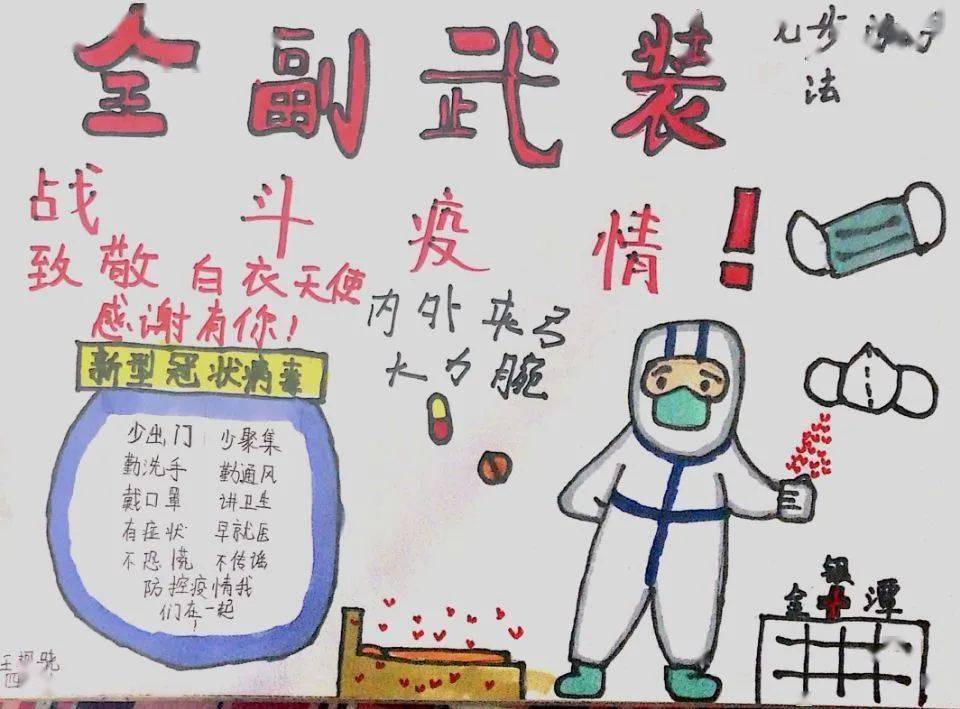 全副武装
步
法
战斗疫情!
致敬白衣天使
感谢有你!
内外夹弓
大力腕
新型冠状病毒
少出门 少聚集
勤洗手 勤通风
戴口罩 讲卫生
有症状 早就医
不恐慌 不传谣
防控疫情我
们在一起
!
银
金 潭
四